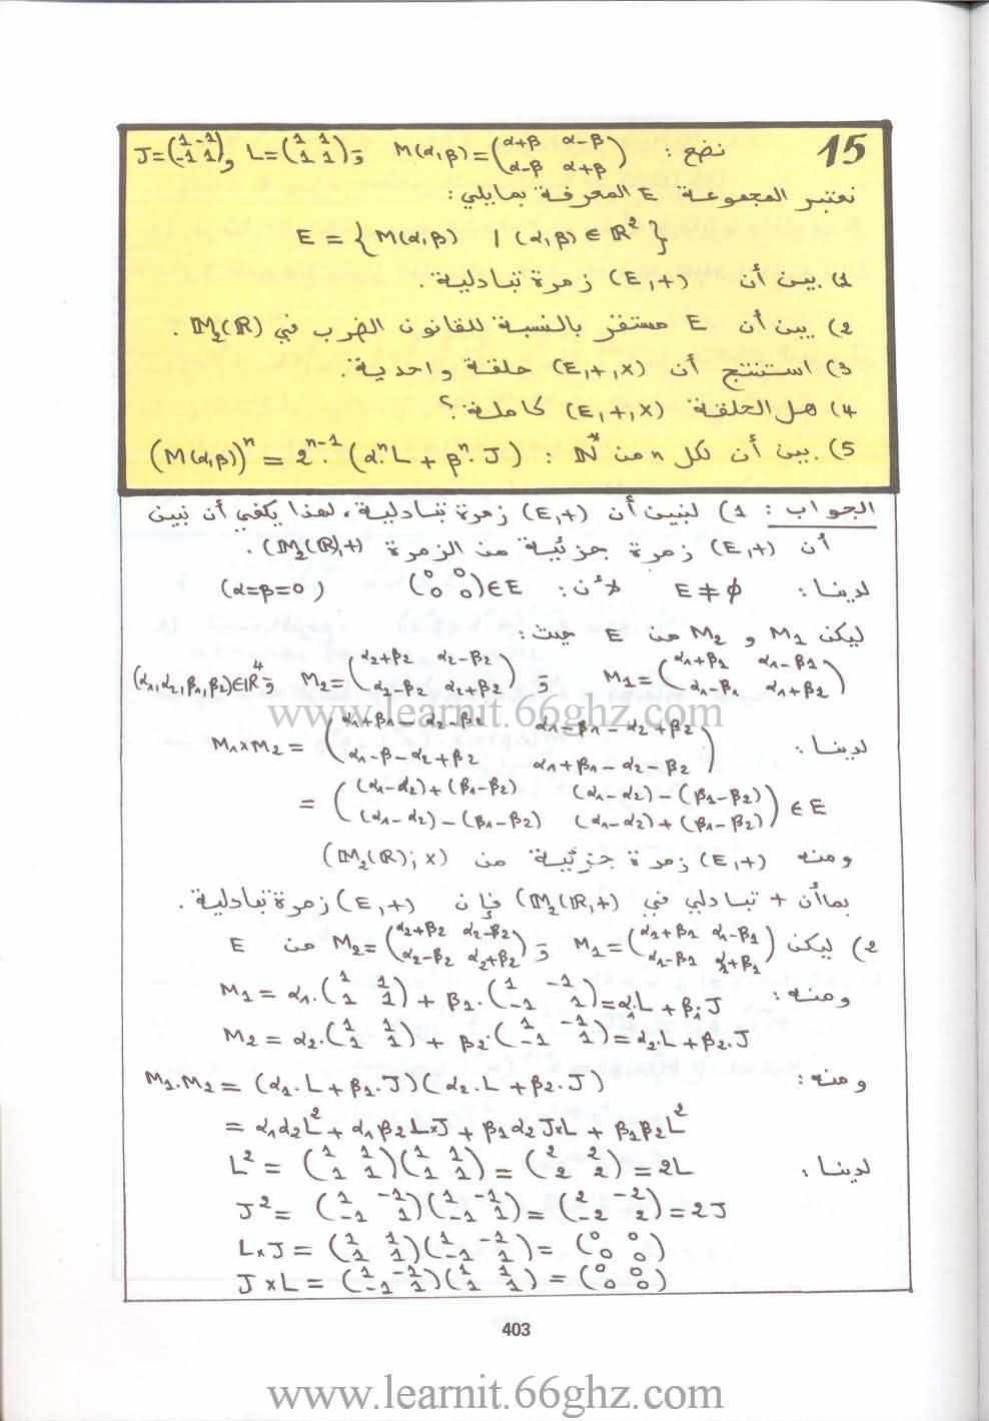 15 نضع : M(α,β)=(α+β α-β / α-β α+β) و L=(1 1 / 1 1) و J=(1 -1 / -1 1)
نعتبر المجموعة E المعرفة بمايلي :
E = { M(α,β) | (α,β) ∈ ℝ² }
1) بين أن (E,+) زمرة تبادلية .
2) بين أن E مستقر بالنسبة للقانون الضرب في M₂(ℝ) .
3) استنتج أن (E,+,×) حلقة واحدية .
4) هل الحلقة (E,+,×) كاملة ؟
5) بين أن لكل n من ℕ* : (M(α,β))ⁿ = 2ⁿ⁻¹.(αⁿ.L + βⁿ.J)
الجواب : 1) لنبين أن (E,+) زمرة تبادلية ، لهذا يكفي أن نبين
أن (E,+) زمرة جزئية من الزمرة (M₂(ℝ),+) .
لدينا : E ≠ ∅ لأن : (0 0 / 0 0) ∈ E (α=β=0)
ليكن M₁ و M₂ من E حيث :
M₁=(α₁+β₁ α₁-β₁ / α₁-β₁ α₁+β₂) و M₂=(α₂+β₂ α₂-β₂ / α₂-β₂ α₂+β₂) و (α₁,α₂,β₁,β₂)∈ℝ⁴
www.learnit.66ghz.com
لدينا : M₁×M₂ = (α₁+β₁-α₂-β₂ α₁-β₁-α₂+β₂ / α₁-β-α₂+β₂ α₁+β₁-α₂-β₂)
= ((α₁-α₂)+(β₁-β₂) (α₁-α₂)-(β₁-β₂) / (α₁-α₂)-(β₁-β₂) (α₁-α₂)+(β₁-β₂)) ∈ E
ومنه (E,+) زمرة جزئية من (M₂(ℝ);×)
بماأن + تبادلي في (M₂(ℝ,+) فإن (E,+) زمرة تبادلية .
2) ليكن M₁=(α₁+β₁ α₁-β₁ / α₁-β₁ α₁+β₁) و M₂=(α₂+β₂ α₂-β₂ / α₂-β₂ α₂+β₂) من E
ومنه : M₁ = α₁.(1 1 / 1 1) + β₁.(1 -1 / -1 1) = α₁.L + β₁.J
M₂ = α₂.(1 1 / 1 1) + β₂.(1 -1 / -1 1) = α₂.L + β₂.J
ومنه : M₁.M₂ = (α₁.L + β₁.J)(α₂.L + β₂.J)
= α₁α₂L² + α₁β₂L×J + β₁α₂J×L + β₁β₂L²
لدينا : L² = (1 1 / 1 1)(1 1 / 1 1) = (2 2 / 2 2) = 2L
J² = (1 -1 / -1 1)(1 -1 / -1 1) = (2 -2 / -2 2) = 2J
L×J = (1 1 / 1 1)(1 -1 / -1 1) = (0 0 / 0 0)
J×L = (1 -1 / -1 1)(1 1 / 1 1) = (0 0 / 0 0)
403
www.learnit.66ghz.com